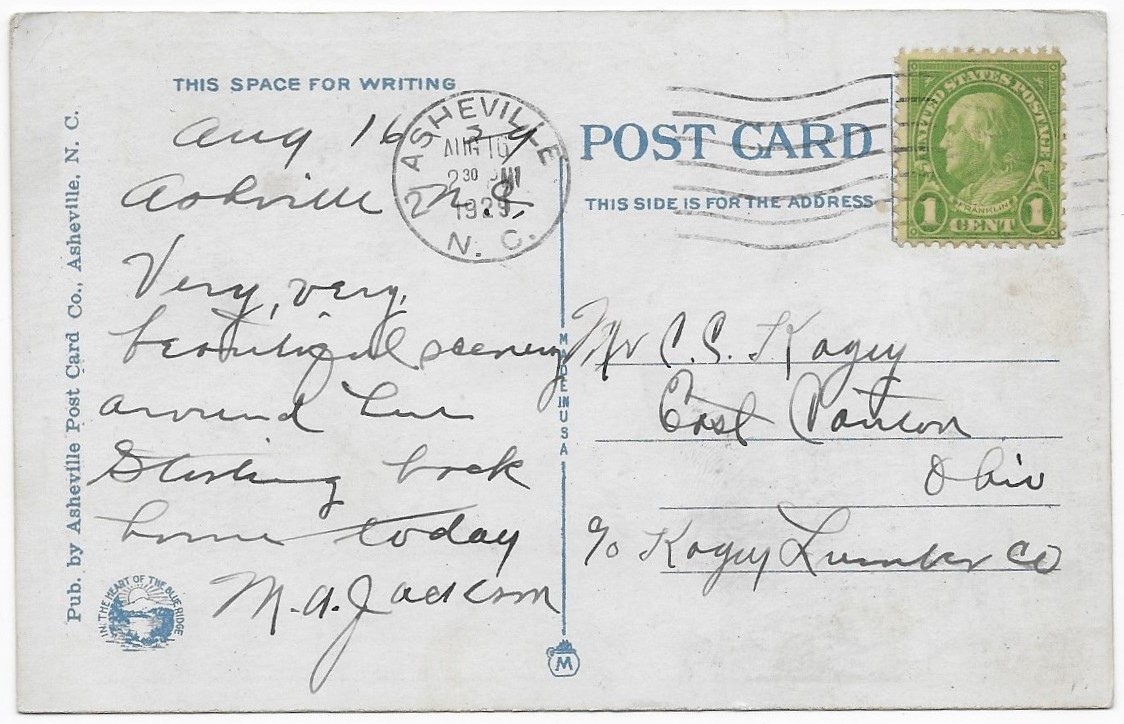 THIS SPACE FOR WRITING
Aug 16
Ashville N.C.
Very, very,
beautiful scenery
around here
Starting back
home today
M. A. Jackson
Pub. by Asheville Post Card Co., Asheville, N. C.
IN THE HEART OF THE BLUE RIDGE
ASHEVILLE
AUG 16
2 30 PM
1929
N. C.
2
MADE IN USA
M
POST CARD
THIS SIDE IS FOR THE ADDRESS
UNITED STATES POSTAGE
FRANKLIN
1 CENT 1
Mr C. S. Kagey
East Canton
Ohio
c/o Kagey Lumber Co